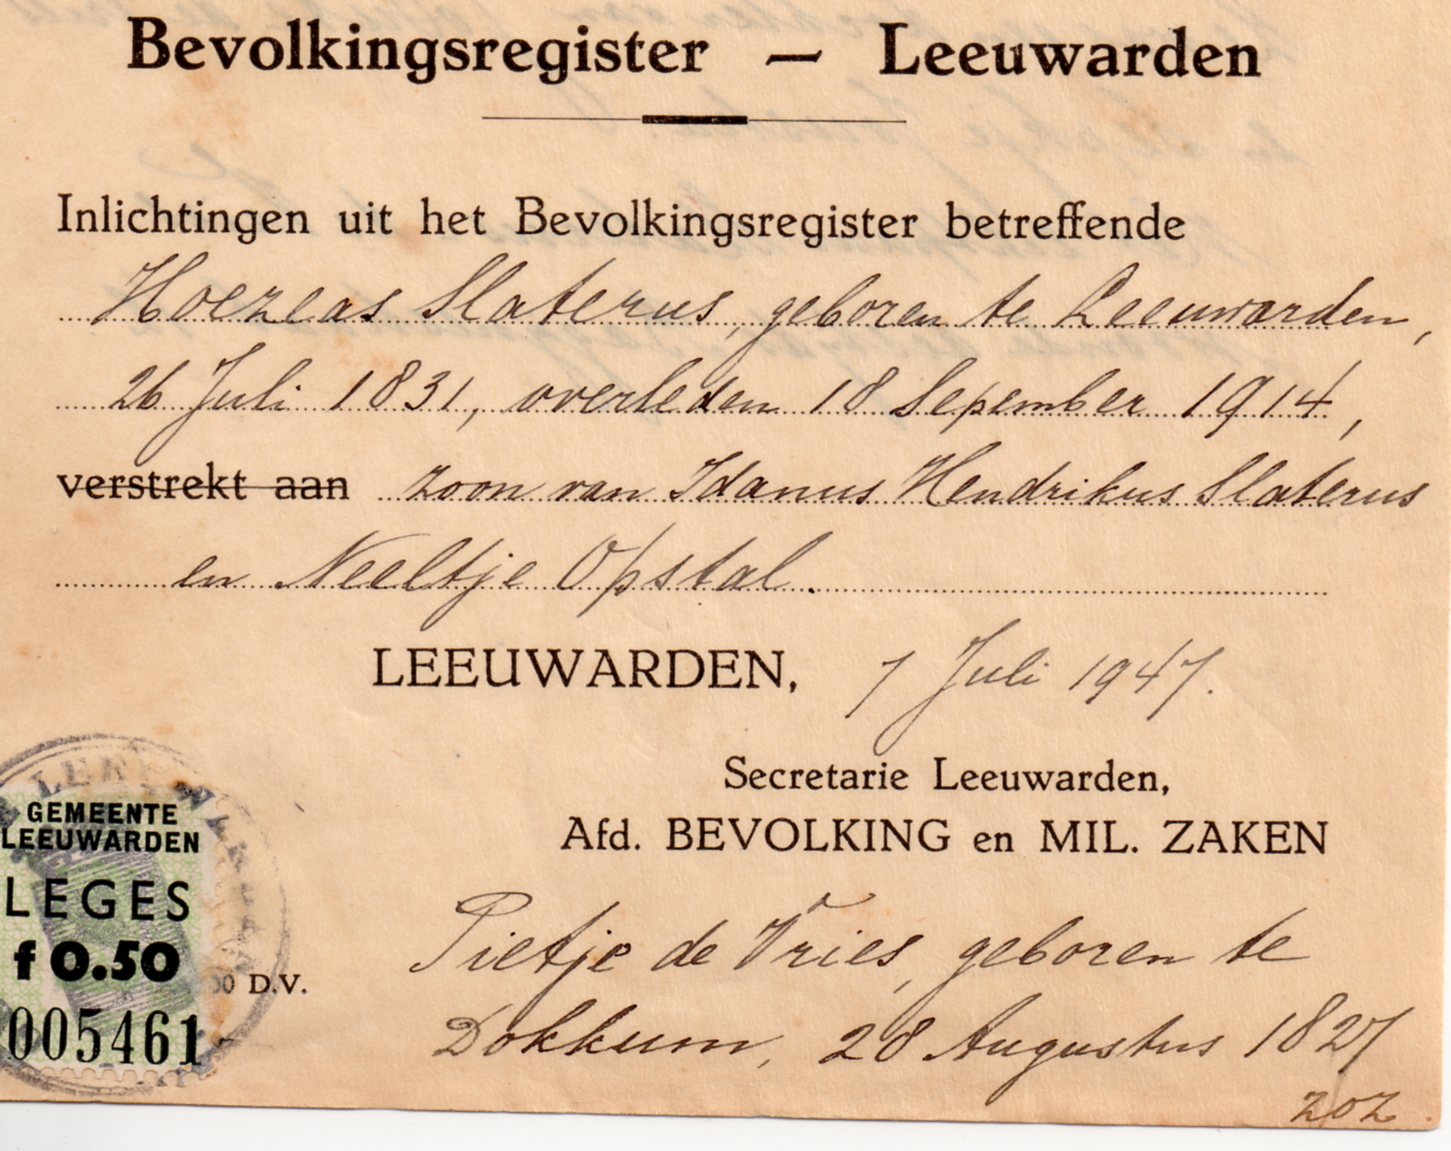 Bevolkingsregister — Leeuwarden
Inlichtingen uit het Bevolkingsregister betreffende
Hoezeas Slaterus, geboren te Leeuwarden,
26 Juli 1831, overleden 18 Sepember 1914,
verstrekt aan zoon van Idanus Hendrikus Slaterus
en Neeltje Opstal.
LEEUWARDEN, 7 Juli 1947.
Secretarie Leeuwarden,
Afd. BEVOLKING en MIL. ZAKEN
GEMEENTE
LEEUWARDEN
LEGES
f 0.50
005461
D.V.
Pietje de Vries, geboren te
Dokkum, 28 Augustus 1827
zoz